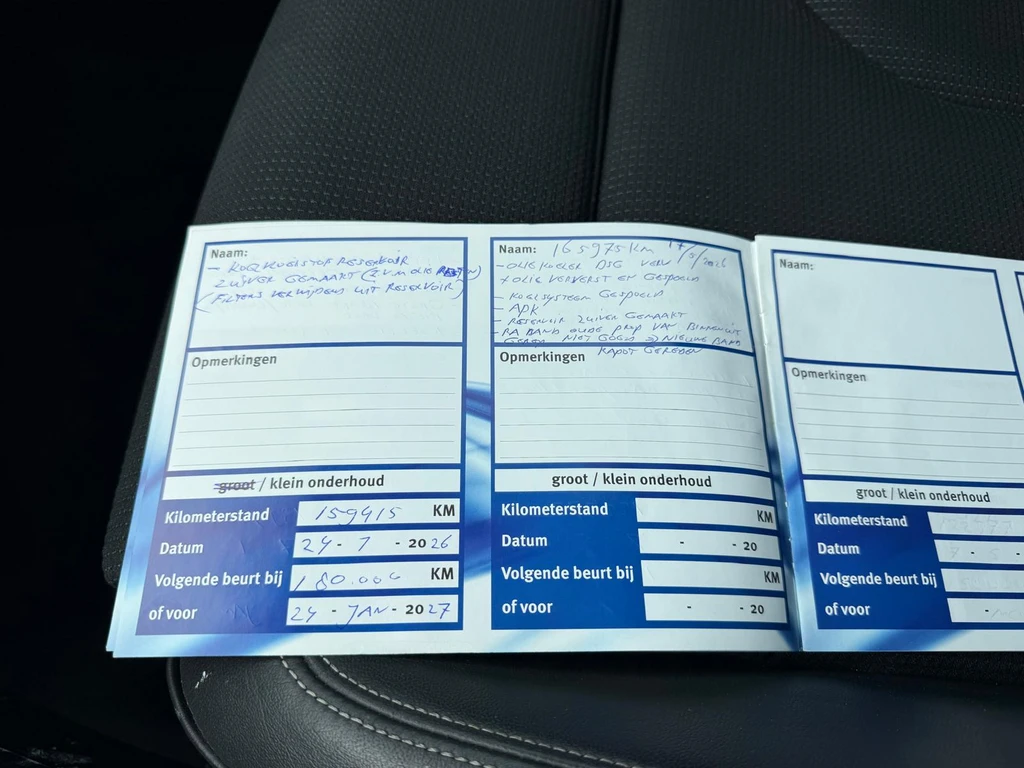 Naam:
- KOELVLOEISTOF RESERVOIR
ZUIVER GEMAAKT (I.V.M OLIE RESTEN)
(FILTERS VERWIJDERD UIT RESERVOIR)
Opmerkingen
groot / klein onderhoud
Kilometerstand 159415 KM
Datum 24 - 7 - 20 26
Volgende beurt bij 180.000 KM
of voor 24 - JAN - 20 27
Naam: 165975km 17/ /2026
- OLIE KOELER DSG VERV
+ OLIE VERVERST EN GESPOELD
- KOELSYSTEEM GESPOELD
- APK
- RESERVOIR ZUIVER GEMAAKT
- RA BAND OUDE PROP VAN BINNENUIT
NIET GOED => NIEUWE BAND
KAPOT GEREDEN
Opmerkingen
groot / klein onderhoud
Kilometerstand KM
Datum - - 20
Volgende beurt bij KM
of voor - - 20
Naam:
Opmerkingen
groot / klein onderhoud
Kilometerstand
Datum
Volgende beurt bij
of voor